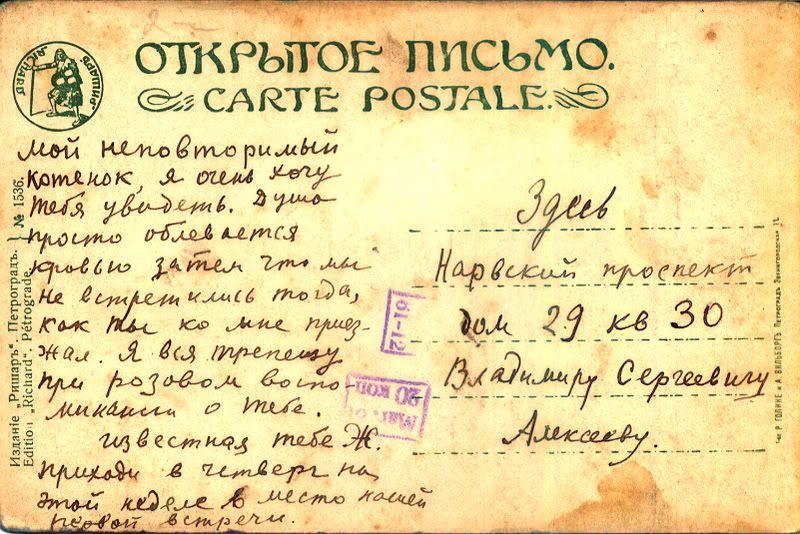 ОТКРЫТОЕ ПИСЬМО.
CARTE POSTALE.
„РИШАРЪ"
„RICHARD"
Мой неповторимый
котенок, я очень хочу
тебя увидеть. Душа
просто облевается
кровью затем что мы
не встретились тогда,
как ты ко мне приез-
жал. Я вся трепещу
при розовом воспо-
минании о тебе.
известная тебе Ж.
приходи в четверг на
этой неделе в место нашей
первой встречи.
Здесь
Нарвский проспект
дом 29 кв 30
Владимиру Сергеевичу
Алексееву.
61-12
20 коп
Маг.
Изданіе „Ришаръ". Петроградъ.
Edition „Richard". Pétrograde.
№ 1536.
Р. ГОЛИКЕ и А. ВИЛЬБОРГЪ. ПЕТРОГРАДЪ